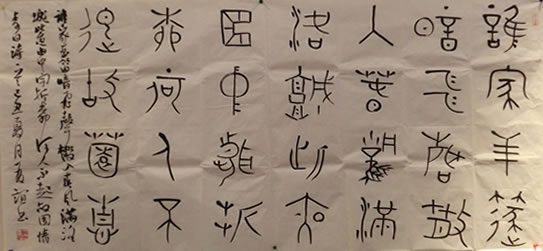 誰家玉笛
暗飛聲散
入春風滿
洛城此夜
曲中聞折
柳何人不
起故園情
誰家玉笛暗飛聲散入春風滿洛
城此夜曲中聞折柳何人不起故園情
李白詩